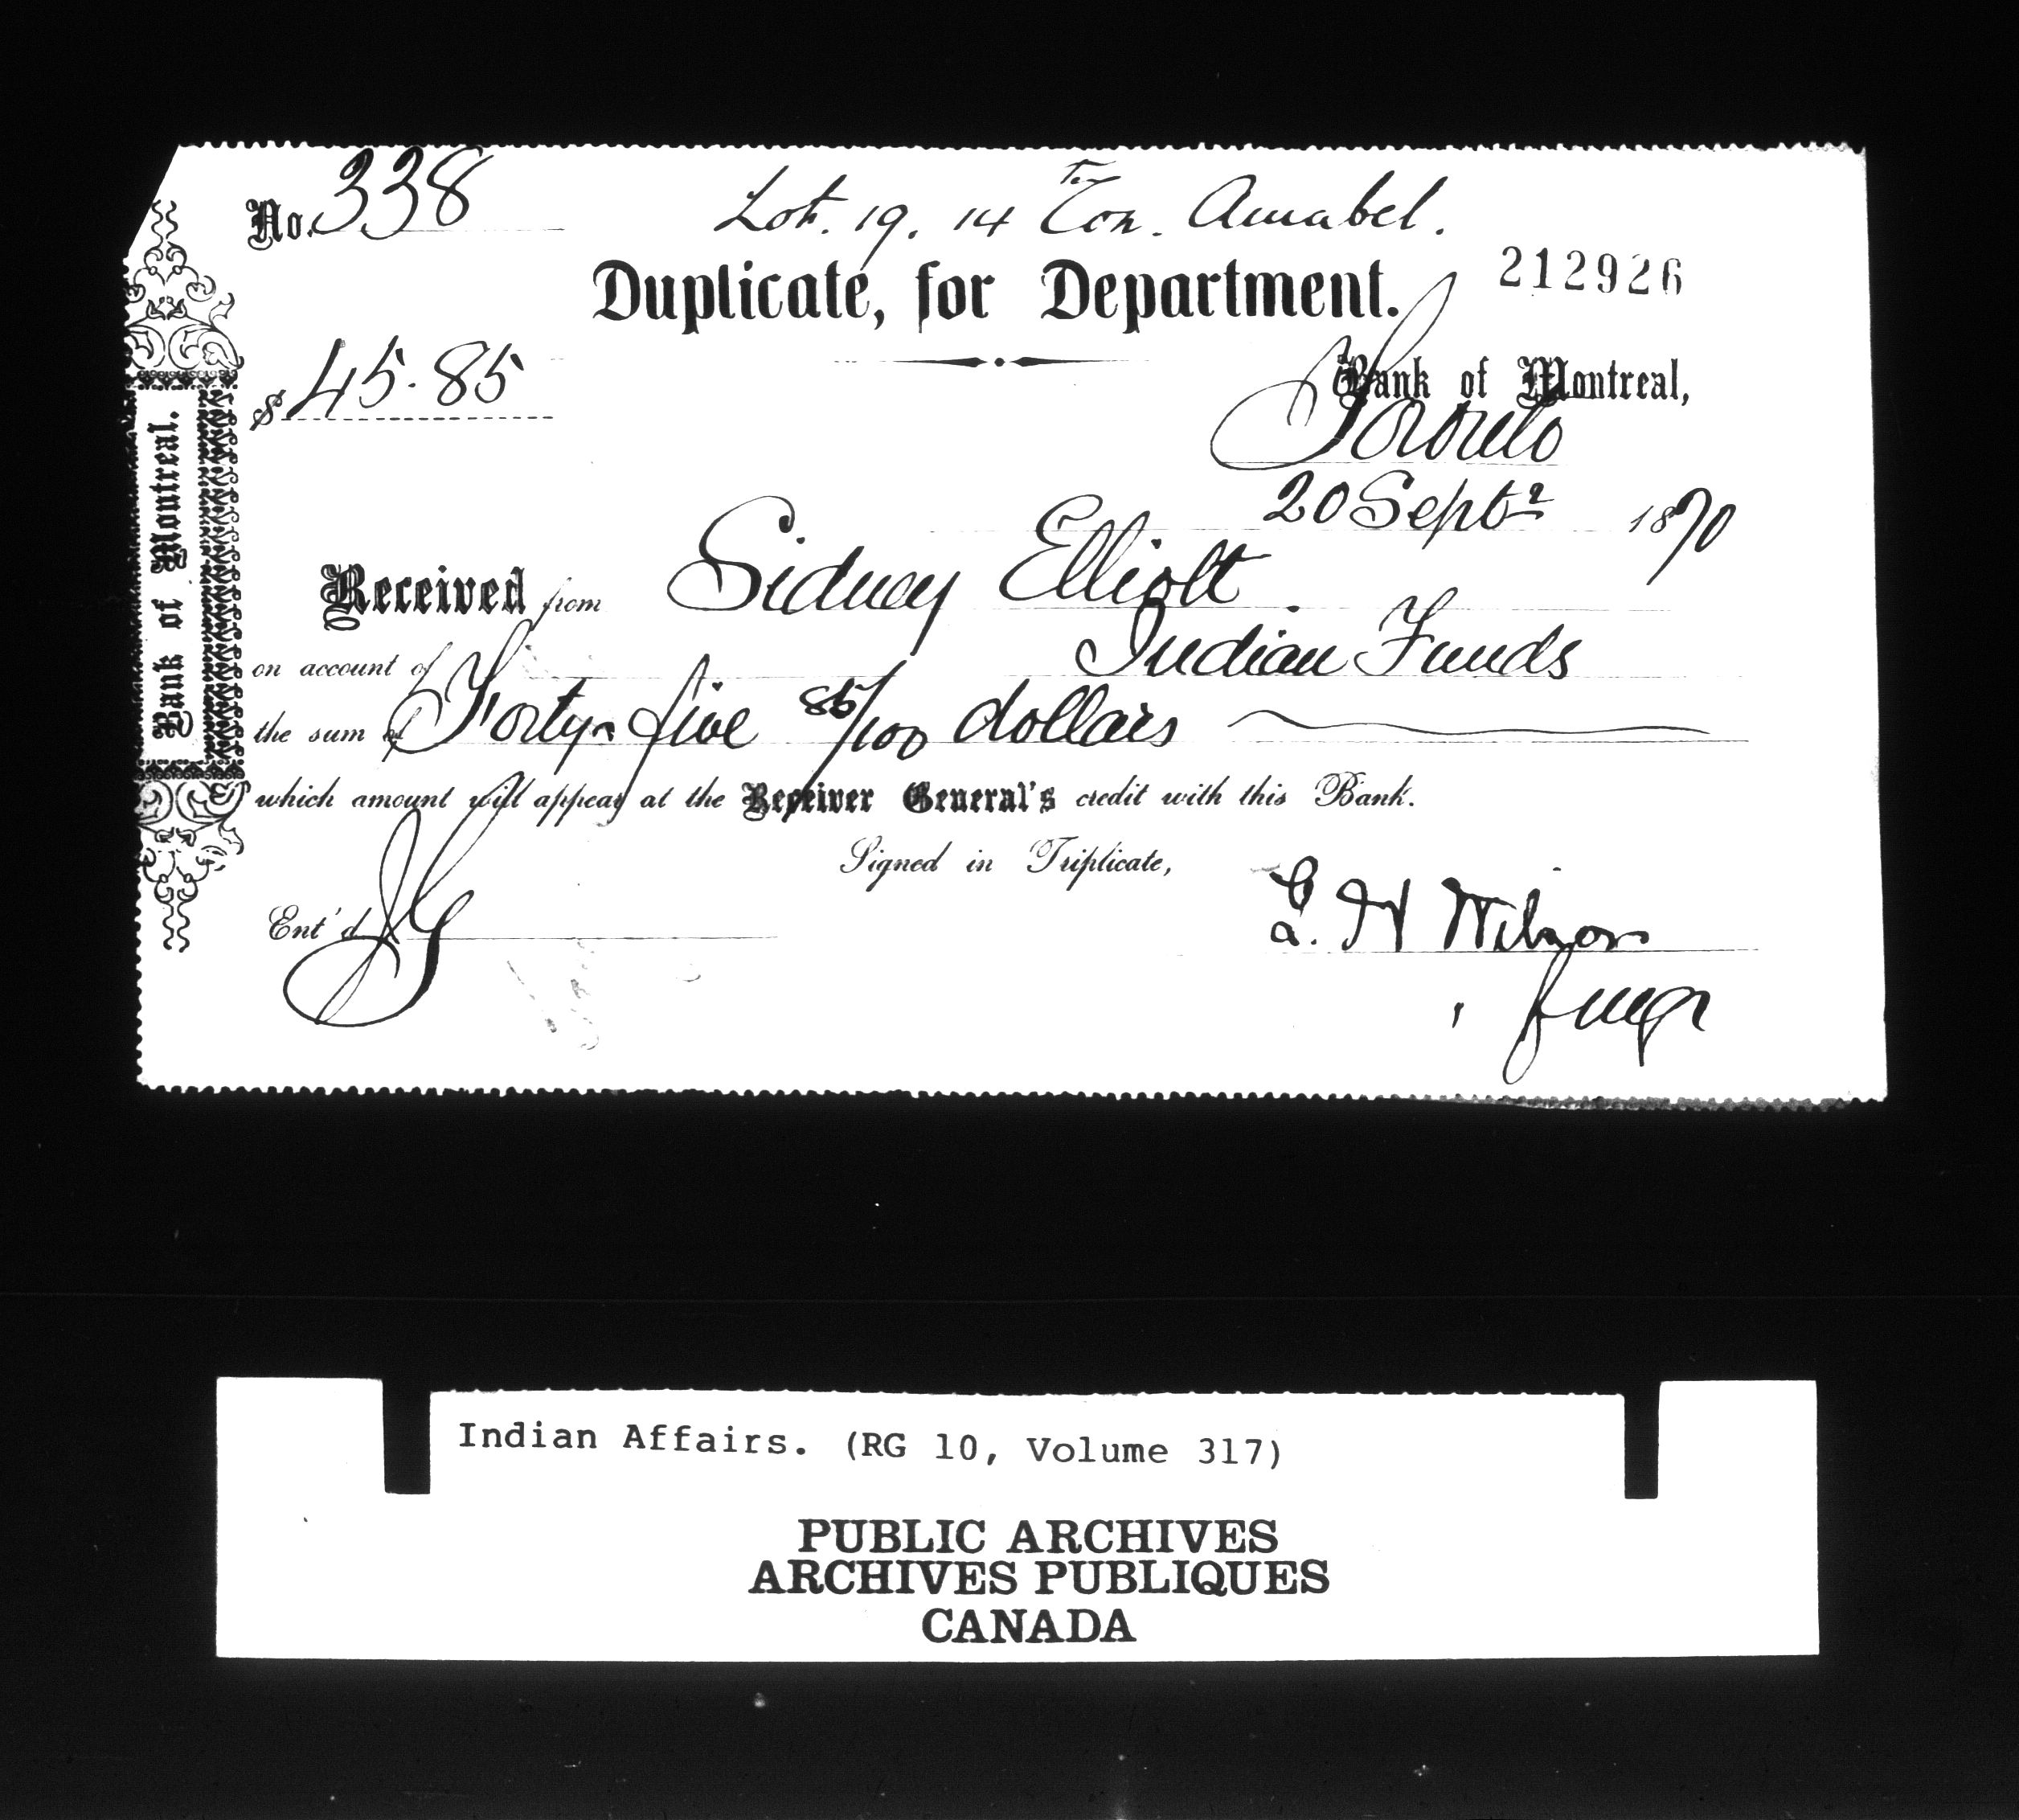 No. 338
Lot. 19. 14 Con. Amabel.
Duplicate, for Department.
212926
$ 45.85
Bank of Montreal,
Toronto
20 Septr 1870
Received from Sidney Elliott.
on account of Indian Funds
the sum of Forty-five 85/100 dollars
which amount will appear at the Receiver General's credit with this Bank.
Signed in Triplicate,
Ent'd JG
G. H Wilson
Bank of Montreal.
Indian Affairs. (RG 10, Volume 317)
PUBLIC ARCHIVES
ARCHIVES PUBLIQUES
CANADA